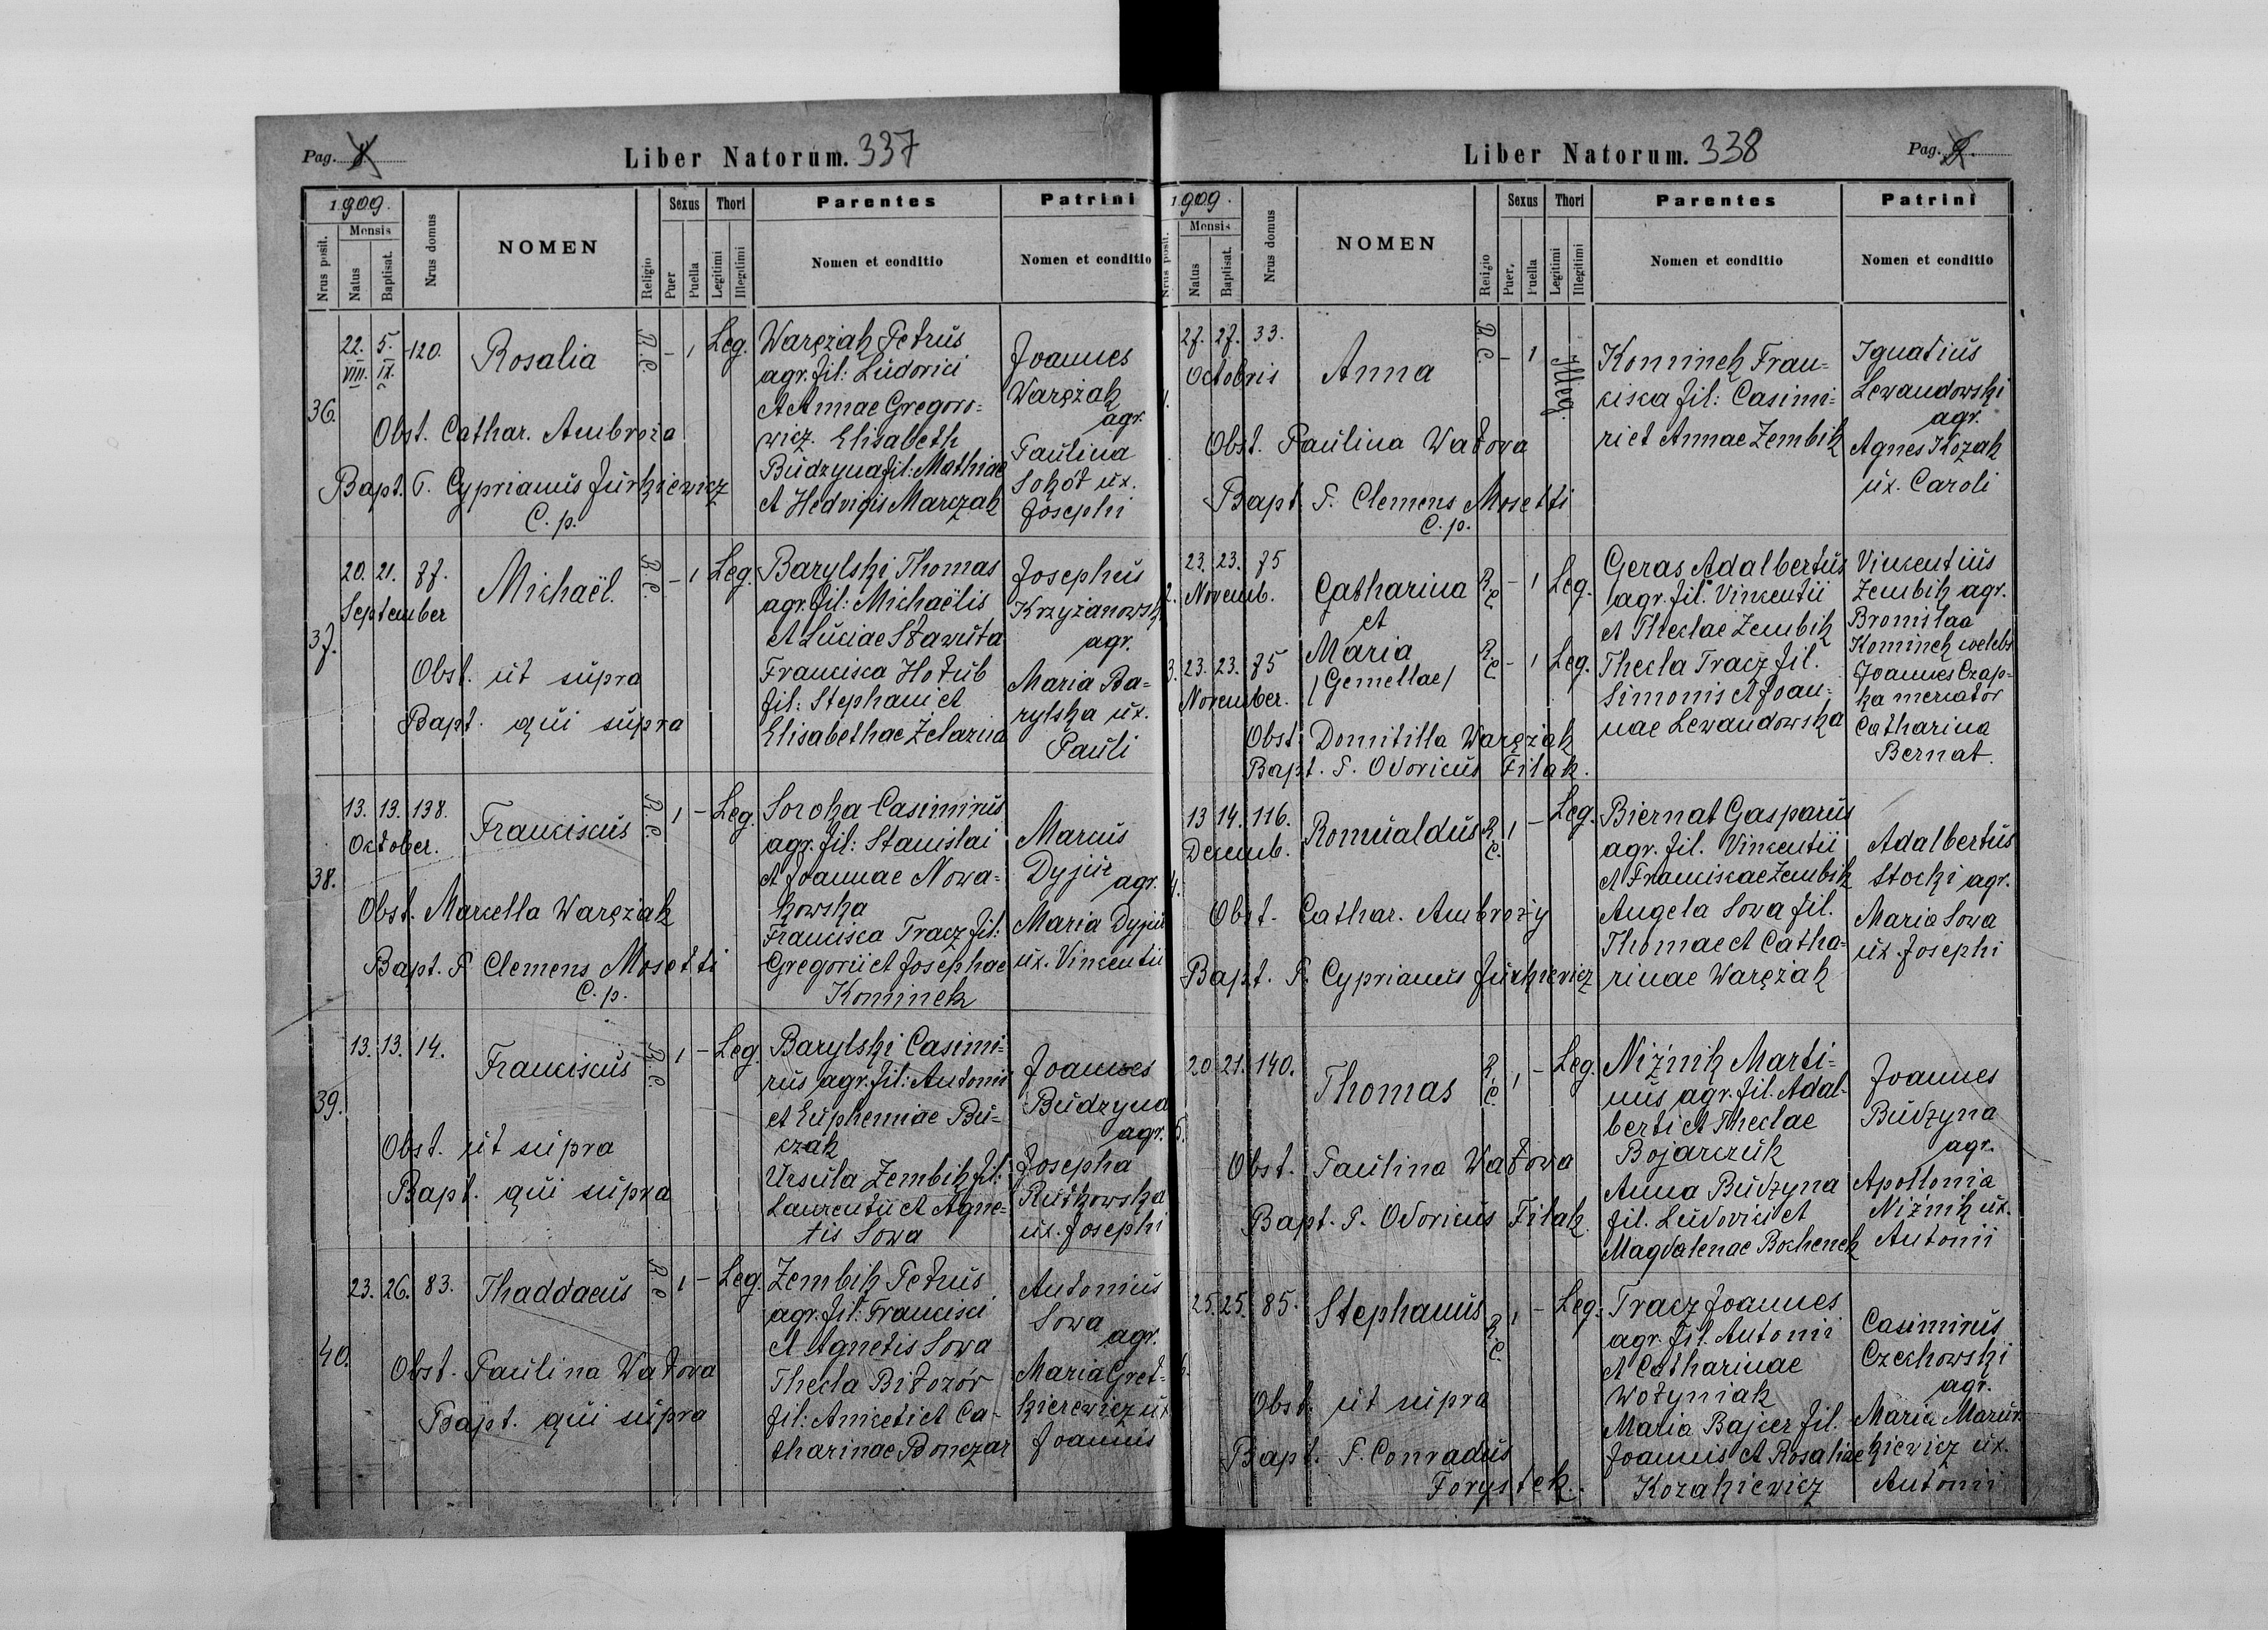 Pag. 8
Liber Natorum. 337
1909.
Nrus posit.
Mensis
Natus
Baptisat.
Nrus domus
NOMEN
Religio
Sexus
Puer
Puella
Thori
Legitimi
Illegitimi
Parentes
Nomen et conditio
Patrini
Nomen et conditio
36.
22. 5. 120.
VIII. IX.
Rosalia
R. C.
- 1 Leg.
Obst. Cathar. Ambroża
Bapt. P. Cyprianus Jurkiewicz
C. p.
Warężak Petrus
agr. fil: Ludovici
et Annae Gregoro=
wicz. Elisabeth
Budzyna fil: Mathiae
et Hedvigis Marczak
Joannes
Warężak
agr.
Paulina
Sokół ux.
Josephi
37.
20. 21. 77.
September
Michaël.
R. C.
- 1 Leg.
Obst. ut supra
Bapt. qui supra
Barylski Thomas
agr. fil: Michaëlis
et Luciae Sławuta
Francisca Hołub
fil: Stephani et
Elisabethae Zelazna
Josephus
Krzyżanowski
agr.
Maria Ba=
rylska ux.
Pauli
38.
13. 13. 138.
October.
Franciscus
R. C.
1 - Leg.
Obst. Marcella Warężak
Bapt. P. Clemens Mosetti
C. p.
Soroka Casimirus
agr. fil: Stanislai
et Joannae Nowa=
kowska
Francisca Tracz fil:
Gregorii et Josephae
Kominek
Marcus
Dyjūr
agr.
Maria Dyjur
ux. Vincentii
39.
13. 13. 14.
Franciscus
R. C.
1 - Leg.
Obst. ut supra
Bapt. qui supra
Barylski Casimi=
rus agr. fil: Antonii
et Euphemiae Bu=
czak
Ursula Zembik fil:
Laurentii et Agne=
tis Sowa
Joannes
Budzyna
agr.
Josepha
Rutkowska
ux. Josephi
40.
23. 26. 83.
Thaddaeus
R. C.
1 - Leg.
Obst. Paulina Wałowa
Bapt. qui supra
Zembik Petrus
agr. fil: Francisci
et Agnetis Sowa
Thecla Białozór
fil: Aniceti et Ca-
tharinae Bonczar
Antonius
Sowa
agr.
Maria Gret=
kierewicz ux
Joannis
Liber Natorum. 338
Pag. 9.
1909.
Nrus posit.
Mensis
Natus
Baptisat.
Nrus domus
NOMEN
Religio
Sexus
Puer,
Puella
Thori
Legitimi
Illegitimi
Parentes
Nomen et conditio
Patrini
Nomen et conditio
1.
27. 27. 33.
Octobris
Anna
R. C.
- 1 Illeg.
Obst. Paulina Wałowa
Bapt P. Clemens Mosetti
C. p.
Kominek Fran=
cisca fil: Casimi=
ri et Annae Zembik
Ignatius
Lewandowski
agr.
Agnes Kozak
ux. Caroli
2.
23. 23. 75
Novemb.
Catharina
et
R C - 1 Leg.
3.
23. 23. 75
November.
Maria
/Gemellae/
R C - 1 Leg.
Obst. Domitilla Warężak
Bapt. P. Odoricus Filak.
Geras Adalbertus
agr. fil. Vincentii
et Theclae Zembik
Thecla Tracz fil.
Simonis et Joan=
nae Lewandowska
Vincentius
Zembik agr.
Bronislaa
Kominek coelebs
Joannes Czap=
ka mercator
Catharina
Bernat.
4.
13 14. 116.
Decemb.
Romualdus
R. C. 1 - Leg.
Obst. Cathar. Ambroży
Bapt. P. Cyprianus Jurkiewicz
Biernat Gasparus
agr. fil. Vincentii
et Franciscae Zembik
Angela Sowa fil.
Thomae et Catha-
rinae Warężak
Adalbertus
Stocki agr.
Maria Sowa
ux. Josephi
5.
20 21. 140.
Thomas
R. C. 1 - Leg.
Obst. Paulina Wałowa
Bapt. P. Odoricus Filak.
Niźnik Marti=
nus agr. fil. Adal-
berti et Theclae
Bojarczuk
Anna Budzyna
fil. Ludovici et
Magdalenae Bochenek
Joannes
Budzyna
agr.
Apollonia
Niźnik ux.
Antonii
6.
25. 25. 85.
Stephanus
R. C. 1 - Leg.
Obst. ut supra
Bapt. P. Conradus
Forystek.
Tracz Joannes
agr. fil. Antonii
et Catharinae
Wołyniak
Maria Bajcer fil.
Joannis et Rosaliae
Kozakiewicz
Casimirus
Czechowski
agr.
Maria Marun
kiewicz ux.
Antonii